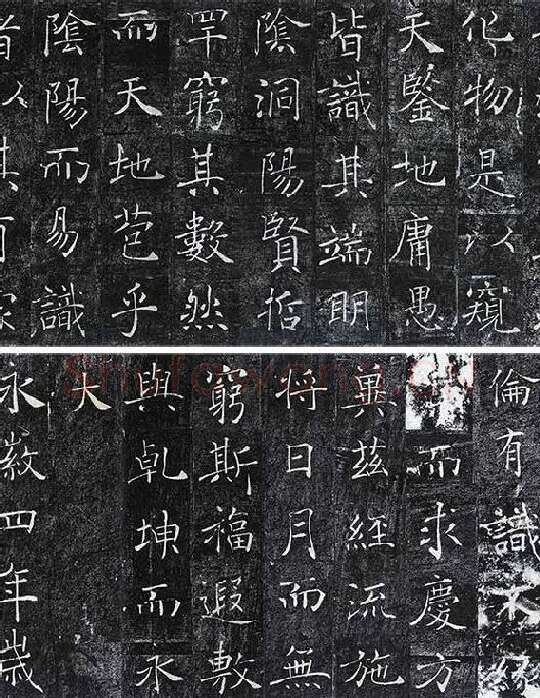 化物是以窺
天鑒地庸愚
皆識其端明
陰洞陽賢哲
罕窮其數然
而天地苞乎
陰陽而易識
者以其有
倫有識不緣
而求慶方
冀茲經流施
將日月而無
窮斯福遐敷
與乾坤而永
大
永徽四年歲